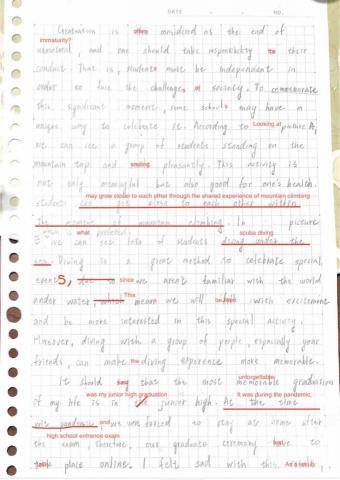 DATE . . NO.
Graduation is often considered as the end of
immaturity?
and one should take responsibility for their
conduct. That is, students must be independent in
order to face the challenges in society. To commemorate
this significant moment, some schools may have a
unique way to celebrate it. According to Looking at picture A,
we can see a group of students standing on the
mountain top and smiling pleasantly. This activity is
not only meaningful but also good for one's health.
may grow closer to each other through the shared experience of mountain climbing
students get closer to each other within
the moment of mountain climbing. In picture
what scuba diving
B, we can see lots of students diving under the
sea. Diving is a great method to celebrate special
events, since we aren't familiar with the world
under water, which This means we will be filled with excitement
and be more interested in this special activity.
Moreover, diving with a group of people, especially your
friends, can make the diving experience more memorable.
unforgettable
It should say that the most memorable graduation
was my junior high graduation It was during the pandemic,
of my life is in junior high. At the time
and we were forced to stay at home after
high school entrance exam
the exam, therefore, our graduate ceremony had to
take place online. I felt sad with this. As a result,